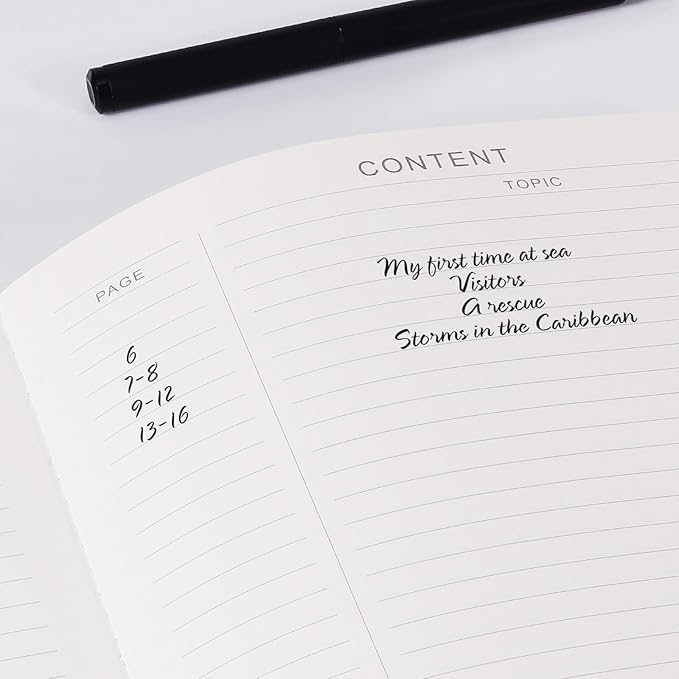 CONTENT
PAGE
TOPIC
6
My first time at sea
7-8
Visitors
9-12
A rescue
13-16
Storms in the Caribbean